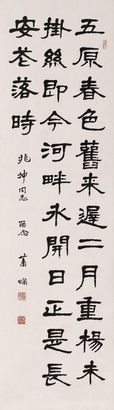 五原春色舊来遲二月重楊未
掛絲即今河畔冰開日正是長
安花落時
兆坤同志 留念 蕭嫻